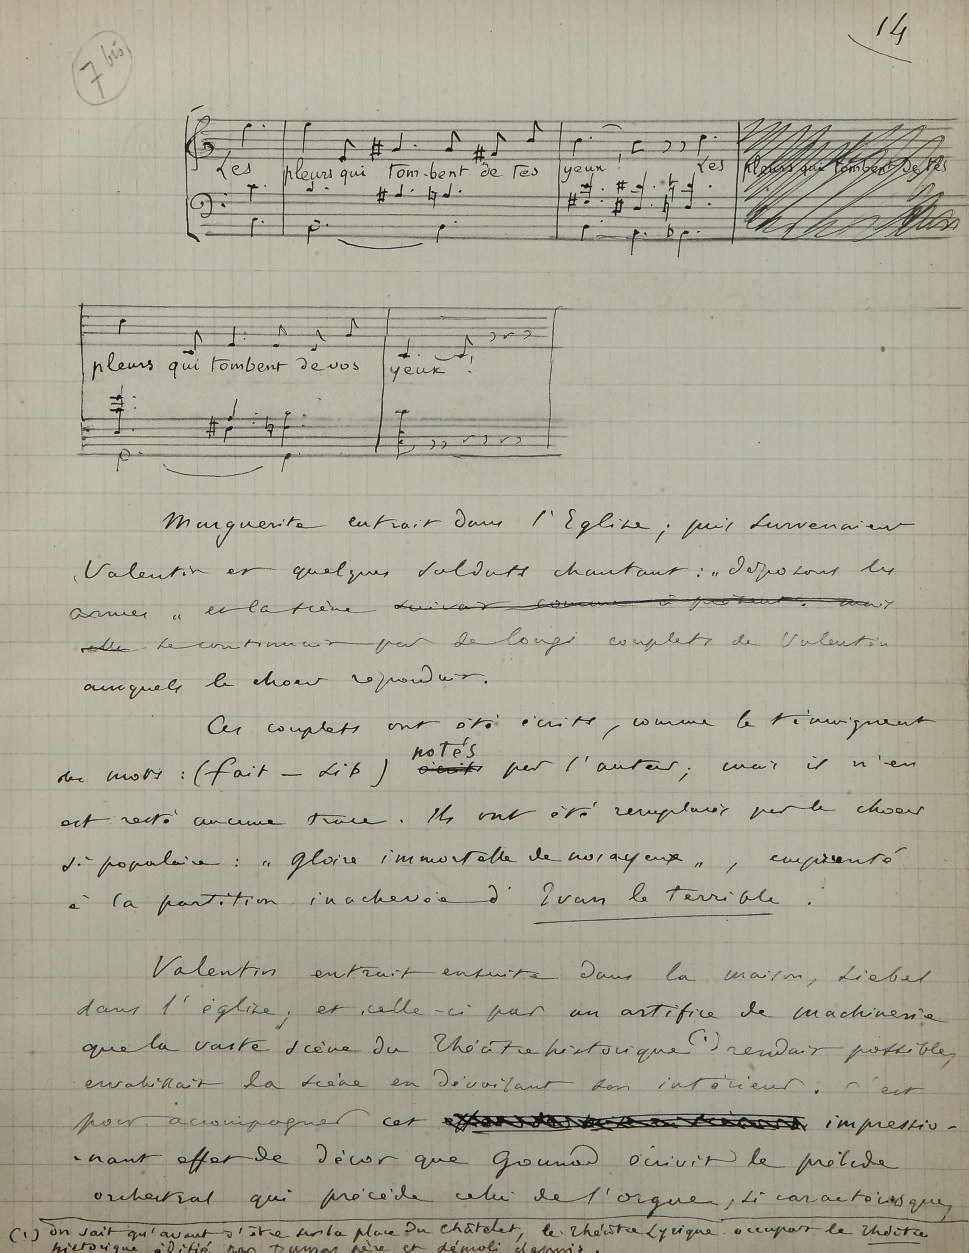 14
7 bis
Les pleurs qui tom-bent de tes yeux, Les pleurs qui tombent de tes
pleurs qui tombent de vos yeux !
Marguerite entrait dans l'Eglise ; puis survenaient
Valentin et quelques soldats chantant : "déposons les
armes" et la scène suivait comme à présent. mais
elle se continuait par de longs couplets de Valentin
auxquels le chœur répondait.
Ces couplets ont été écrits, comme le témoignent
les mots : (fait – Lib) notés écrits par l'auteur ; mais il n'en
est resté aucune trace. Ils ont été remplacés par le chœur
si populaire : "Gloire immortelle de nos ayeux", emprunté
à la partition inachevée d'Ivan le Terrible.
Valentin entrait ensuite dans la maison, Siebel
dans l'église ; et celle-ci par un artifice de machinerie
que la vaste scène du Théâtre historique (1) rendait possible,
envahissait la scène en dévoilant son intérieur. C'est
pour accompagner cet impressio-
-nant effet de décor que Gounod écrivit le prélude
orchestral qui précède celui de l'orgue, si caractéristique,
(1) On sait qu'avant d'être sur la place du Châtelet, le Théâtre Lyrique occupait le Théâtre
historique édifié par Dumas père et démoli depuis.